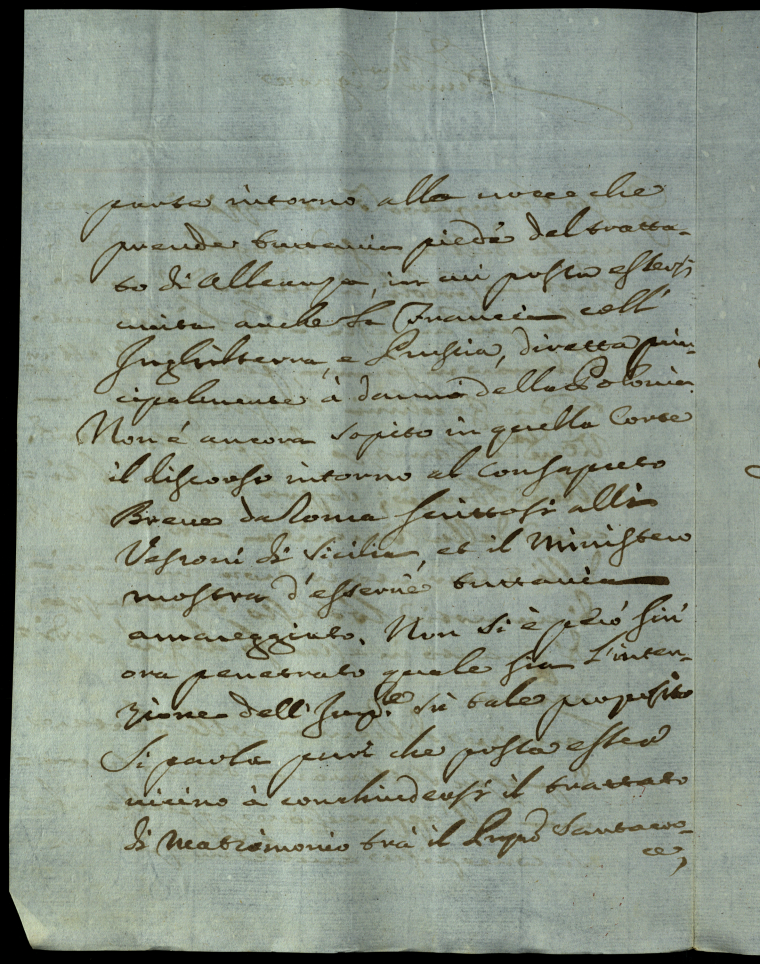 parte intorno alla voce che
prende tuttavia piede del tratta-
to di Alleanza, in cui possa essersi
unita anche la Francia coll'
Inghilterra, e Prussia, diretta prin-
cipalmente à danni della Polonia.
Non é ancora sopito in quella Corte
il discorso intorno al consaputo
Breve da Roma scrittosi alli
Vescovi di Sicilia, et il Ministero
mostra d'esserne tuttavia
amareggiato. Non si è peró sin'
ora penetrato quale sia l'inten-
zione dell'Imp.re sù tale proposito
Si parla pure che possa esser
vicino à conchiudersi il trattato
di Matrimonio trà il Santacro-
ce,